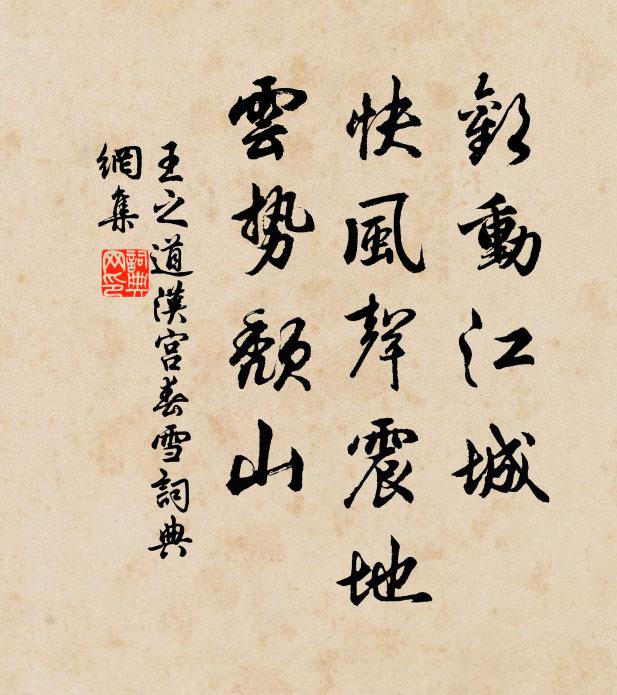 歡動江城
快風聲震地
雲勢頹山
王之道漢宮春雪詞典
網集
詞典
网印